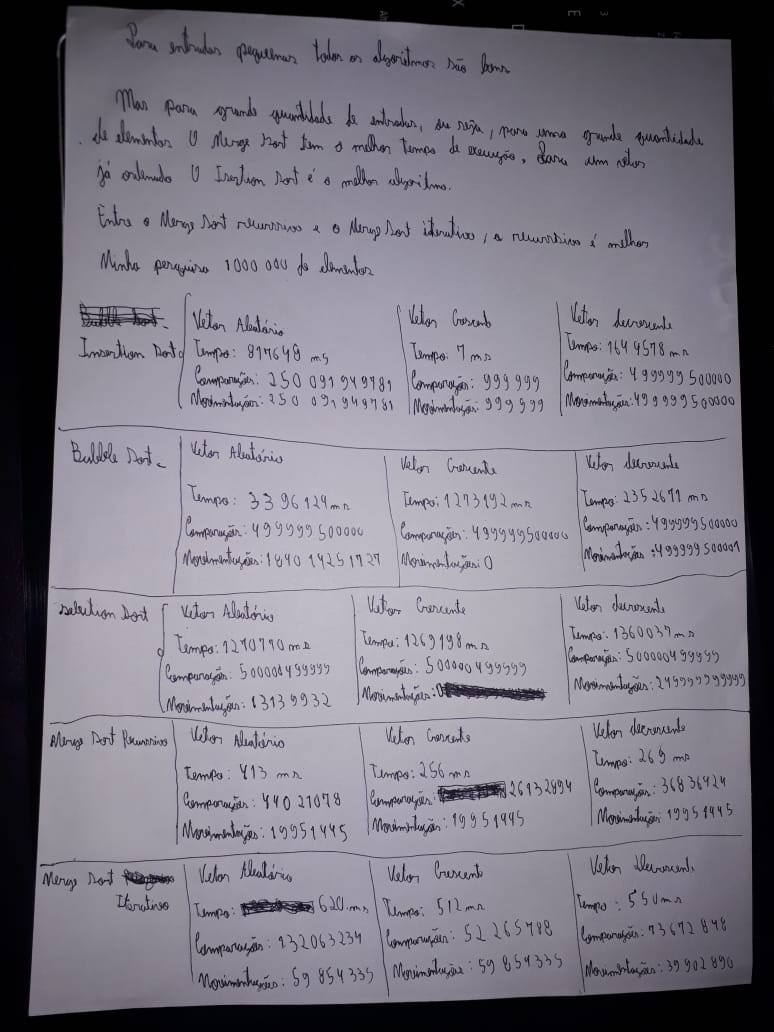 Para entradas pequenas todos os algoritmos são bons
Mas para grande quantidade de entradas, ou seja, para uma grande quantidade
de elementos O Merge Sort tem o melhor tempo de execução, Para um vetor
já ordenado O Isertion Sort é o melhor algoritmo.
Entre o Merge Sort recurssivo e o Merge Sort iterativo, o recurssivo é melhor
Minha pesquisa 1000 000 de elementos
Insertion Sort
Vetor Aleatório
Tempo: 817648 ms
Comparações: 250 091 949781
Movimentações: 250 091 949781
Vetor Crescente
Tempo: 7 ms
Comparações: 999 999
Movimentações: 999 999
Vetor decrescente
Tempo: 1644578 ms
Comparações: 499999500000
Movimentações: 499999500000
Bubble Sort
Vetor Aleatório
Tempo: 3396124 ms
Comparações: 499999500000
Movimentações:
Vetor Crescente
Tempo: 1273192 ms
Comparações: 499999500000
Movimentações: 0
Vetor decrescente
Tempo: 2352671 ms
Comparações: 499999500000
Movimentações:
Selection Sort
Vetor Aleatório
Tempo: 1270770 ms
Comparações: 500000499999
Movimentações: 13139932
Vetor Crescente
Tempo: 1269198 ms
Comparações: 500000499999
Movimentações: 0
Vetor decrescente
Tempo: 1360037 ms
Comparações: 500000499999
Movimentações: 249999999999
Merge Sort Recurssivo
Vetor Aleatório
Tempo: 413 ms
Comparações: 44021078
Movimentações: 19951445
Vetor Crescente
Tempo: 256 ms
Comparações: 26132894
Movimentações: 19951445
Vetor decrescente
Tempo: 269 ms
Comparações: 36836424
Movimentações: 19951445
Merge Sort
Iterativo
Vetor Aleatório
Tempo: 620 ms
Comparações: 132063234
Movimentações: 59 854 335
Vetor Crescente
Tempo: 512 ms
Comparações: 52 265 788
Movimentações: 59 854 335
Vetor Decrescente
Tempo: 550 ms
Comparações: 73672 848
Movimentações: 39 902 890